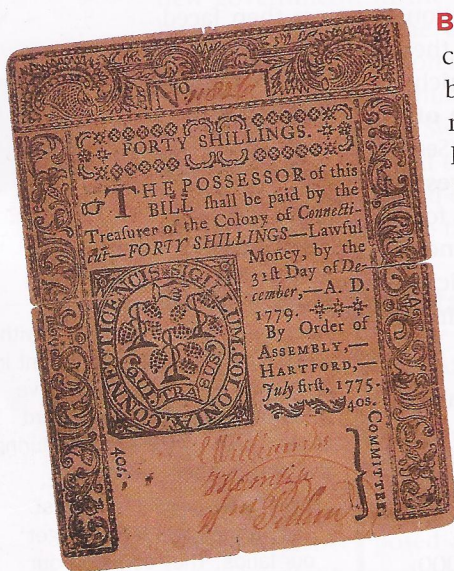 No
FORTY SHILLINGS.
THE POSSESSOR of this
BILL ſhall be paid by the
Treaſurer of the Colony of Connecti-
cut—FORTY SHILLINGS—Lawful
Money, by the
31ſt Day of De-
cember,—A. D.
1779.
By Order of
ASSEMBLY,—
HARTFORD,—
July firſt, 1775.
40s.
SIGILLUM. COLONIÆ. CONNECTICENSIS
QUI TRA SUS
40s.
COMMITTEE.
Williams
B
c
b